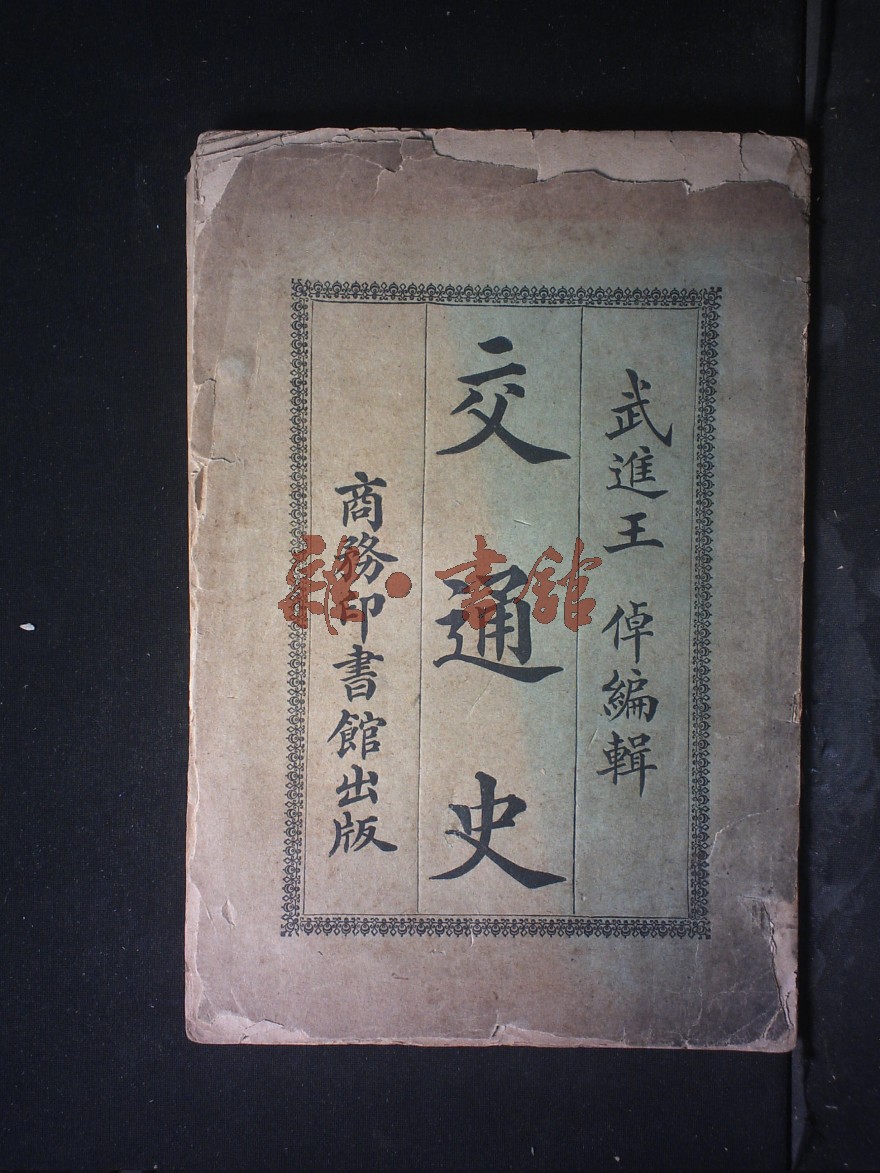 武進王 倬編輯
交通史
商務印書館出版
雜·書館